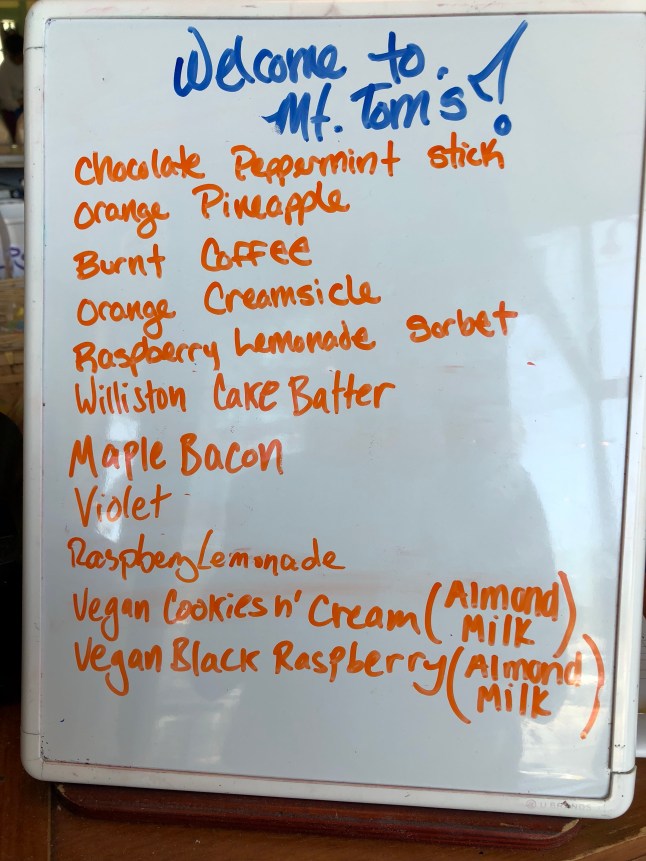 Welcome to
Mt. Tom's!
Chocolate Peppermint stick
Orange Pineapple
Burnt Coffee
Orange Creamsicle
Raspberry Lemonade Sorbet
Williston Cake Batter
Maple Bacon
Violet
Raspberry Lemonade
Vegan Cookies n' Cream (Almond
Milk)
Vegan Black Raspberry (Almond
Milk)